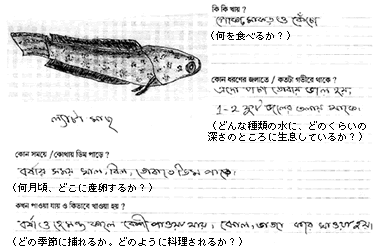 কি কি খায় ?
পোকা, মাকড় ও কেঁচো
(何を食べるか？)
কোন ধরণের জলাতে / কতটা গভীরে থাকে ?
এদো পচা ডোবায় ভাল হয়,
1-2 ফুট জলের তলায় থাকে।
(どんな種類の水に、どのくらいの
深さのところに生息しているか？)
ল্যাটা মাছ
কোন সময়ে / কোথায় ডিম পাড়ে ?
বর্ষার সময় খাল, বিল, ডোবাতে ডিম পাড়ে।
(何月頃、どこに産卵するか？)
কখন পাওয়া যায় ও কিভাবে খাওয়া হয় ?
বর্ষা ও হেমন্ত কালে বেশী পাওয়া যায়, ঝোল, ভাজা করে খাওয়া হয়।
(どの季節に捕れるか。どのように料理されるか？)